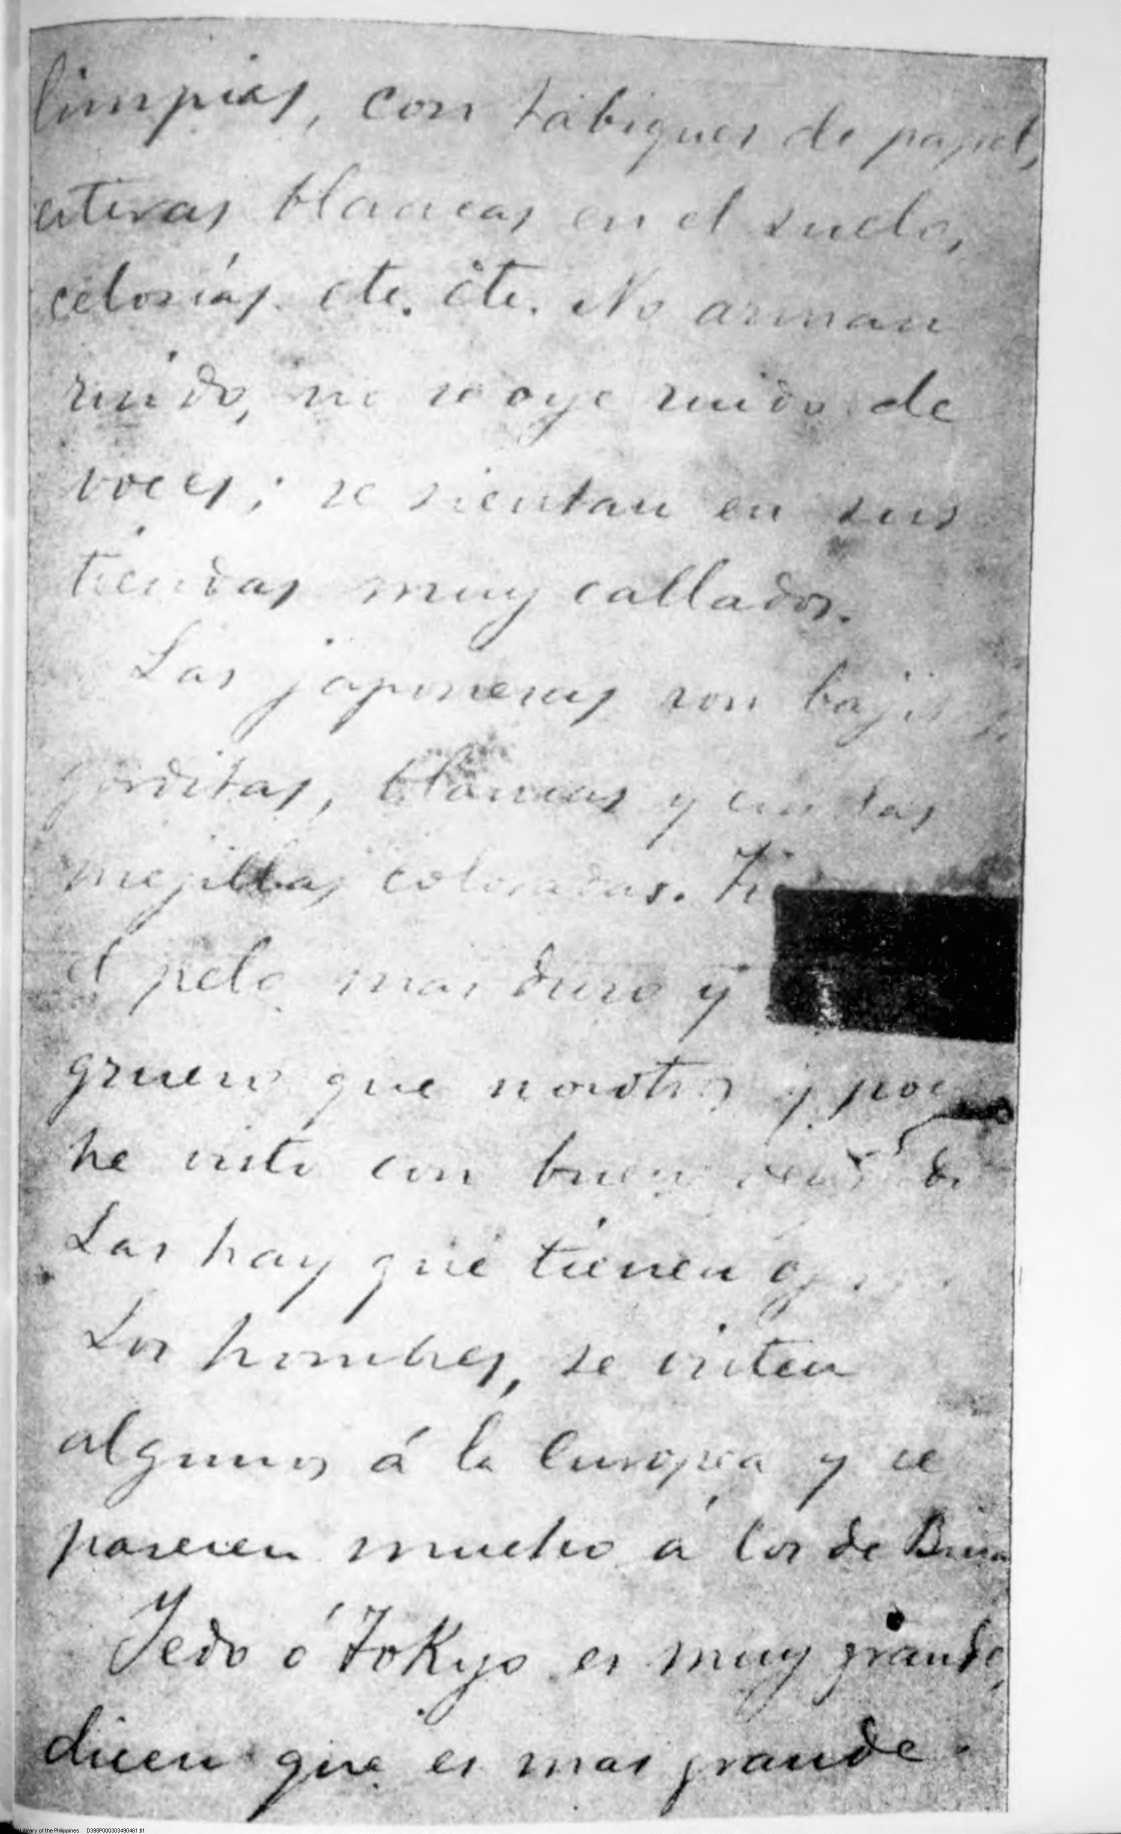 limpias, con tabiques de papel,
esteras blancas en el suelo,
celosías. etc. etc. No arman
ruido, no se oye ruido de
voces; se sientan en sus
tiendas muy callados.
Las japonesas son
gorditas, blancas y con las
mejillas coloradas.
el pelo mas duro y
grueso que nosotros y
he visto con
Las hay que tienen
Los hombres, se visten
algunos á la Europea y se
parecen mucho á los de
Yedo ó Tokyo es muy grande,
dicen que es mas grande
Library of the Philippines